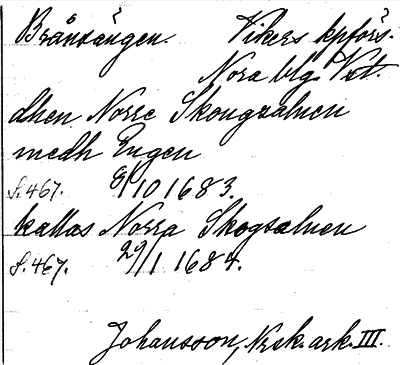 Brånsängen. Vikers kpförs.
Nora blg. Vst.
dhen Norre Skougsalnen
medh Engen
s. 467. 8/10 1683.
kallas Norra Skogsalnen
s. 467. 29/1 1684.
Johansson, Nrek. ark. III.